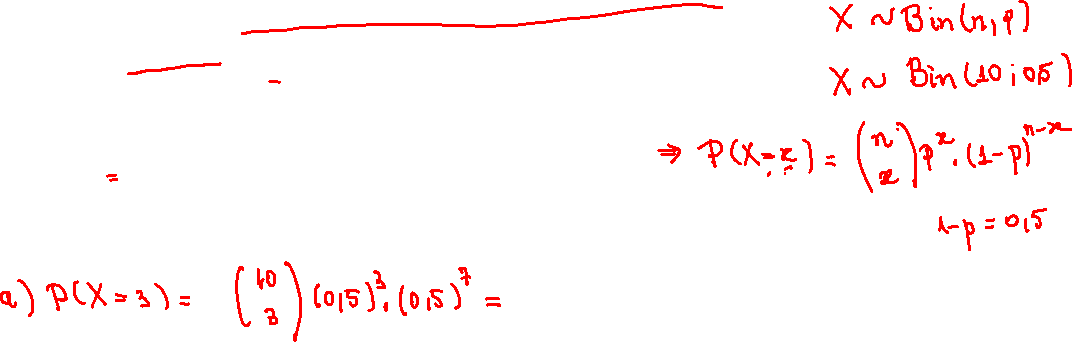 X ~ Bin(n, p)
X ~ Bin(10; 0,5)
⇒ P(X=x) = (n x) p^x . (1-p)^n-x
=
1-p = 0,5
a) P(X=3) = (10 3) (0,5)^3 . (0,5)^7 =